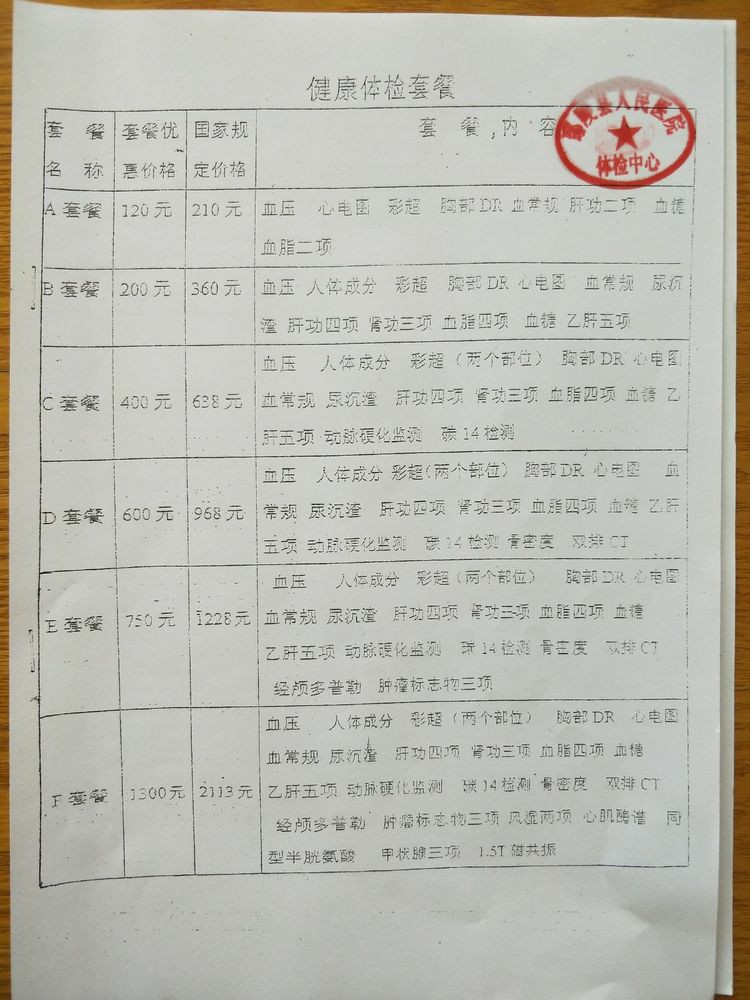 健康体检套餐
鄢陵县人民医院
体检中心
套 餐 套餐优 国家规 套 餐 内 容
名 称 惠价格 定价格
A 套餐 120 元 210 元 血压 心电图 彩超 胸部 DR 血常规 肝功二项 血糖
血脂二项
B 套餐 200 元 360 元 血压 人体成分 彩超 胸部 DR 心电图 血常规 尿沉
渣 肝功四项 肾功三项 血脂四项 血糖 乙肝五项
血压 人体成分 彩超（两个部位） 胸部 DR 心电图
C 套餐 400 元 638 元 血常规 尿沉渣 肝功四项 肾功三项 血脂四项 血糖 乙
肝五项 动脉硬化监测 碳 14 检测
血压 人体成分 彩超（两个部位） 胸部 DR 心电图 血
D 套餐 600 元 968 元 常规 尿沉渣 肝功四项 肾功三项 血脂四项 血糖 乙肝
五项 动脉硬化监测 碳 14 检测 骨密度 双排 CT
血压 人体成分 彩超（两个部位） 胸部 DR 心电图
E 套餐 750 元 1228 元 血常规 尿沉渣 肝功四项 肾功三项 血脂四项 血糖
乙肝五项 动脉硬化监测 碳 14 检测 骨密度 双排 CT
经颅多普勒 肿瘤标志物三项
血压 人体成分 彩超（两个部位） 胸部 DR 心电图
血常规 尿沉渣 肝功四项 肾功三项 血脂四项 血糖
F 套餐 1300 元 2113 元 乙肝五项 动脉硬化监测 碳 14 检测 骨密度 双排 CT
经颅多普勒 肿瘤标志物三项 风湿两项 心肌酶谱 同
型半胱氨酸 甲状腺三项 1.5T 磁共振